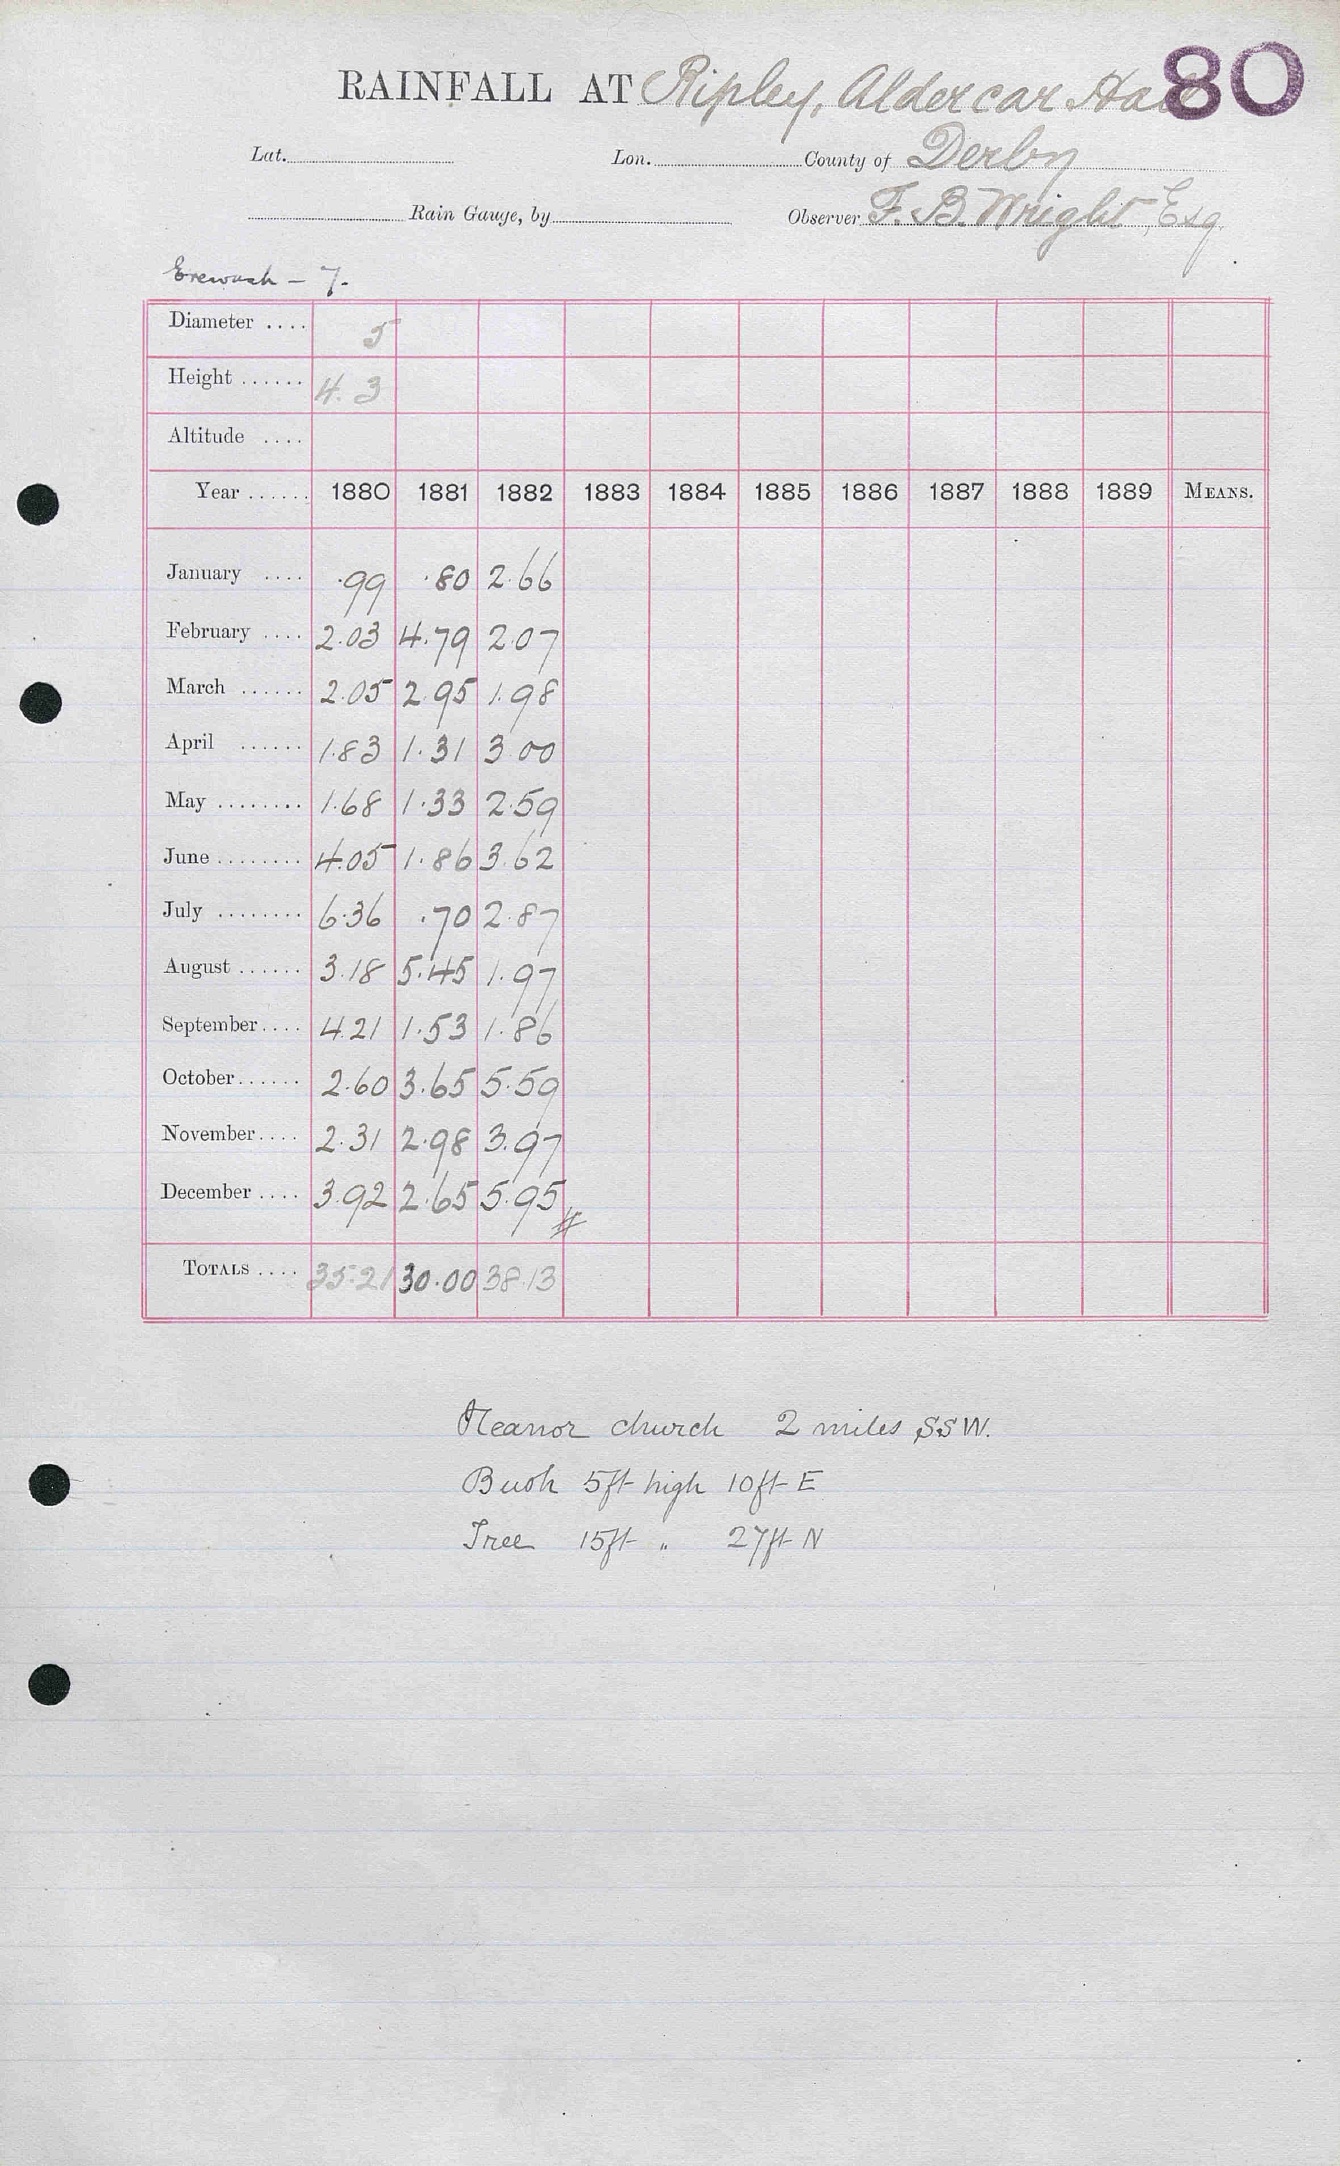 RAINFALL AT Ripley, Aldercar Hall 80
Lat. Lon. County of Derby
Rain Gauge, by Observer F. B. Wright, Esq
Erewash - 7.
Diameter .... 5
Height ...... 4. 3
Altitude ....
Year ...... 1880 1881 1882 1883 1884 1885 1886 1887 1888 1889 MEANS.
January .... .99 .80 2.66
February .... 2.03 4.79 2.07
March ...... 2.05 2.95 1.98
April ...... 1.83 1.31 3 00
May ........ 1.68 1.33 2.59
June ........ 4.05 1.86 3.62
July ........ 6.36 .70 2.87
August ...... 3.18 5.45 1.97
September .... 4.21 1.53 1.86
October ...... 2.60 3.65 5.59
November .... 2.31 2.98 3.97
December .... 3.92 2.65 5.95 #
TOTALS .... 35.21 30.00 38.13
Heanor church 2 miles SSW.
Bush 5ft high 10ft E
Tree 15ft " 27ft N